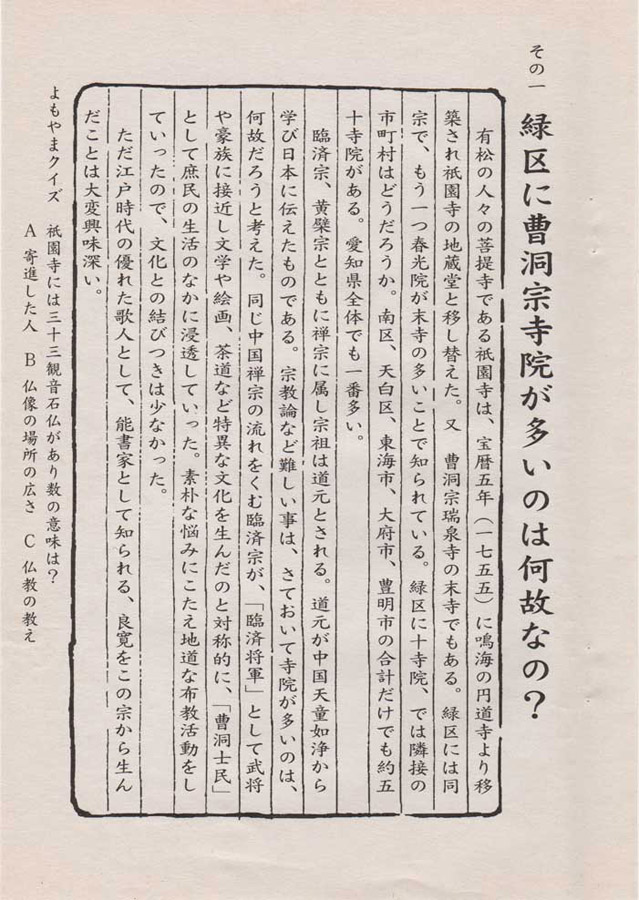 その一
緑区に曹洞宗寺院が多いのは何故なの？
有松の人々の菩提寺である祇園寺は、宝暦五年（一七五五）に鳴海の円道寺より移
築され祇園寺の地蔵堂と移し替えた。又　曹洞宗瑞泉寺の末寺でもある。緑区には同
宗で、もう一つ春光院が末寺の多いことで知られている。緑区に十寺院、では隣接の
市町村はどうだろうか。南区、天白区、東海市、大府市、豊明市の合計だけでも約五
十寺院がある。愛知県全体でも一番多い。
臨済宗、黄檗宗とともに禅宗に属し宗祖は道元とされる。道元が中国天童如浄から
学び日本に伝えたものである。宗教論など難しい事は、さておいて寺院が多いのは、
何故だろうと考えた。同じ中国禅宗の流れをくむ臨済宗が、「臨済将軍」として武将
や豪族に接近し文学や絵画、茶道など特異な文化を生んだのと対称的に、「曹洞士民」
として庶民の生活のなかに浸透していった。素朴な悩みにこたえ地道な布教活動をし
ていったので、文化との結びつきは少なかった。
ただ江戸時代の優れた歌人として、能書家として知られる、良寛をこの宗から生ん
だことは大変興味深い。
よもやまクイズ　祇園寺には三十三観音石仏があり数の意味は？
A 寄進した人　B 仏像の場所の広さ　C 仏教の教え